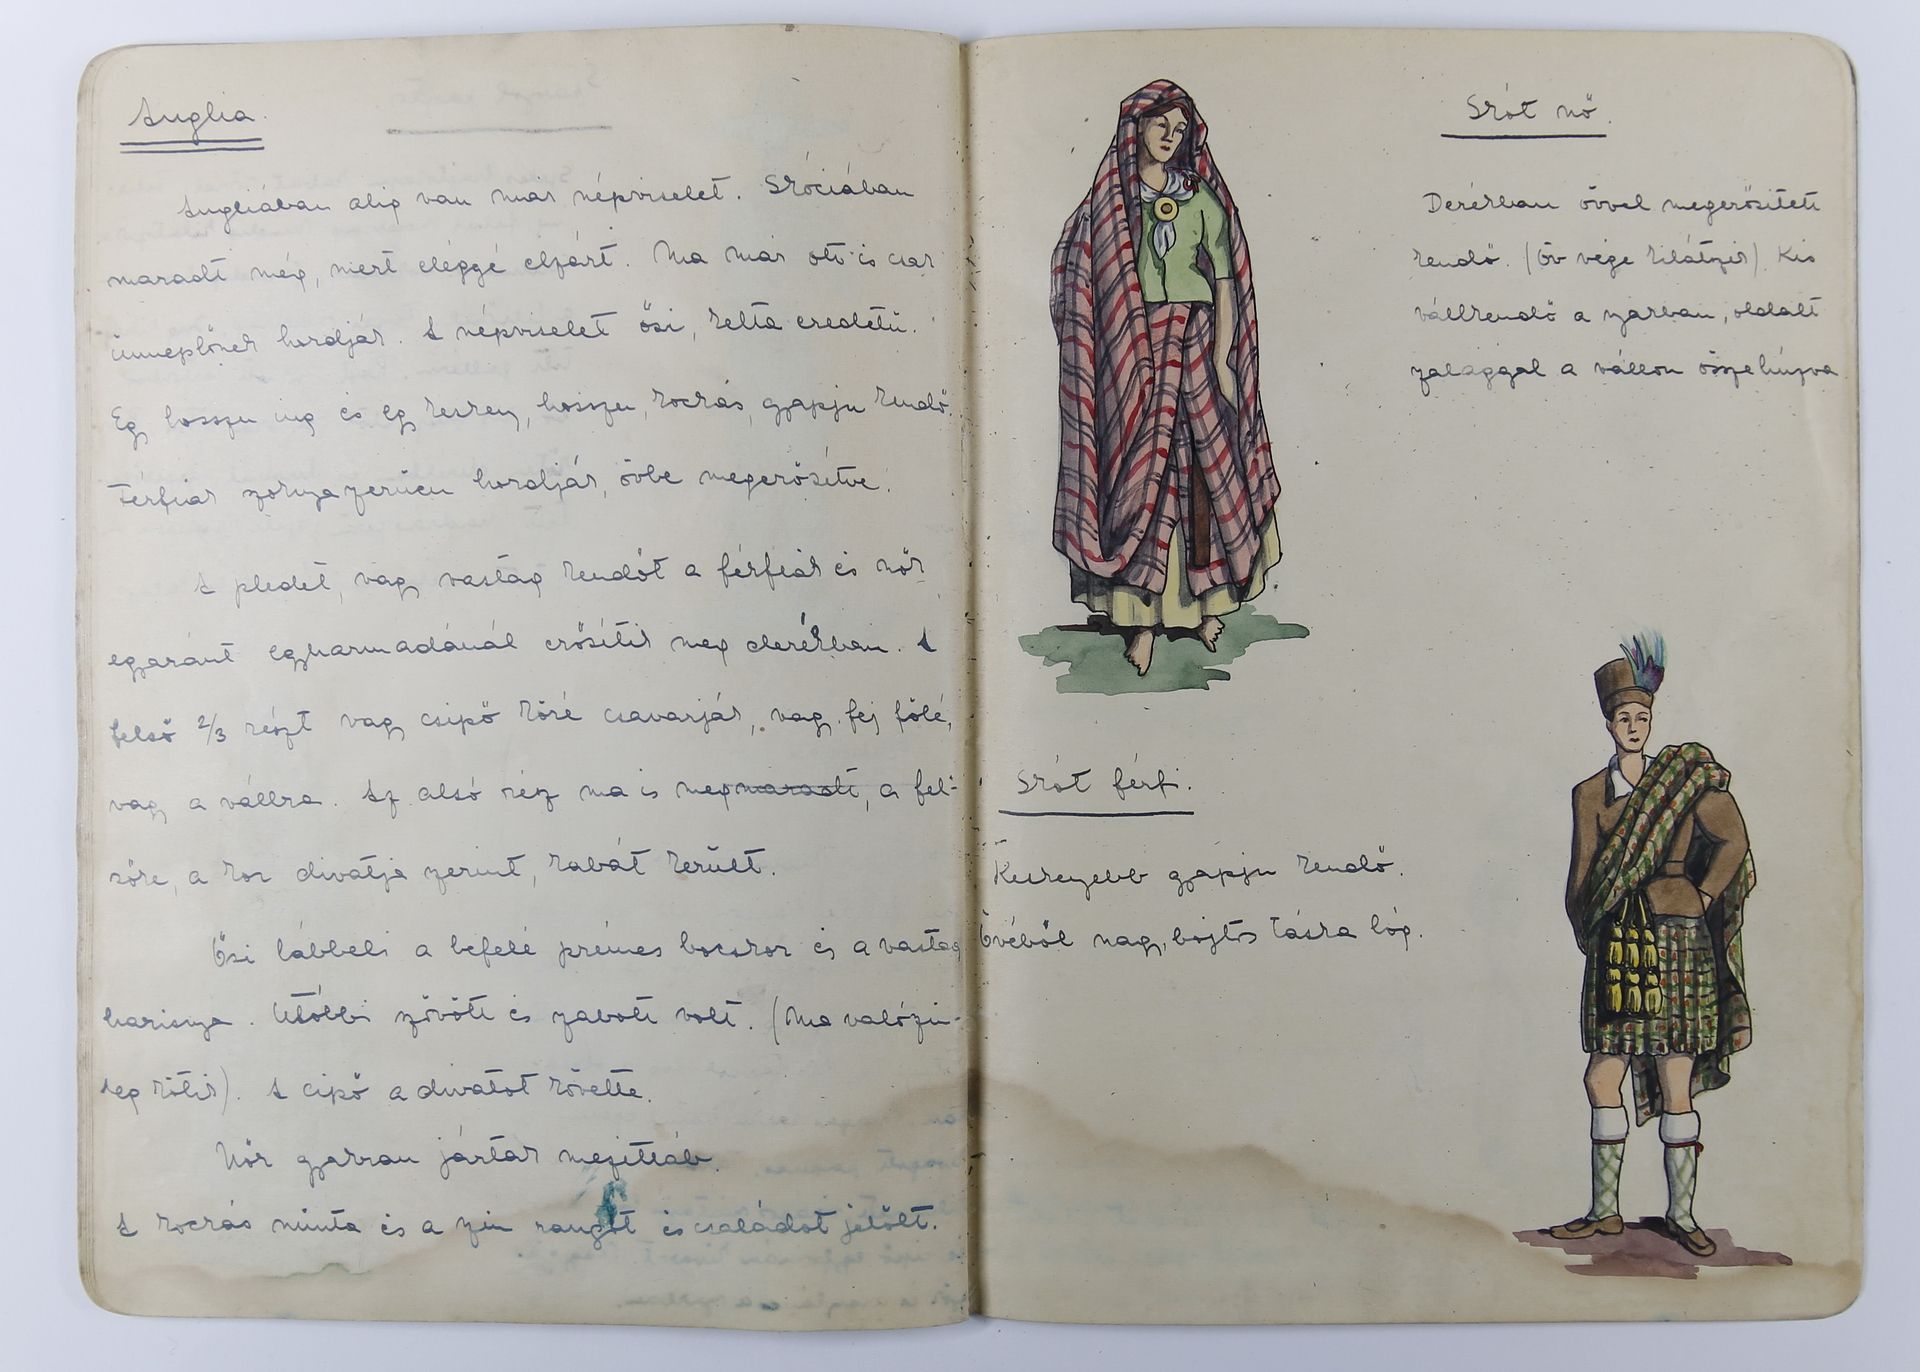 Anglia.
Angliában alig van már népviselet. Skóciában
maradt még, mert eléggé elzárt. Ma már ott is csak
ünneplőnek hordják. A népviselet ősi, kelta eredetű.
Egy hosszu ing és egy keskeny, hosszu, kockás, gyapju kendő.
Férfiak szoknyaszerűen hordják, övbe megerősítve.
A pledet, vagy vastag kendőt a férfiak és nők
egyaránt egyharmadánál erősítik meg derékban. A
felső 2/3 részt vagy csipő köré csavarják, vagy fej fölé,
vagy a vállra. Az alsó rész ma is megmaradt, a fel-
sőre, a kor divatja szerint, kabát került.
Ősi lábbeli a befelé prémes bocskor és a vastag
harisnya. Utóbbi szövött és szabott volt. (Ma valószin-
leg kötik). A cipő a divatot követte.
Nők gyakran jártak mezittláb.
A kockás minta és a szin rangot és családot jelölt.
Skót nő.
Derékban övvel megerősitett
kendő. (Öv vége kilátszik). Kis
vállkendő a nyakban, oldalt
szalaggal a vállon összehúzva.
Skót férfi.
Keskenyebb gyapju kendő.
Övéből nagy, bojtos táska lóg.